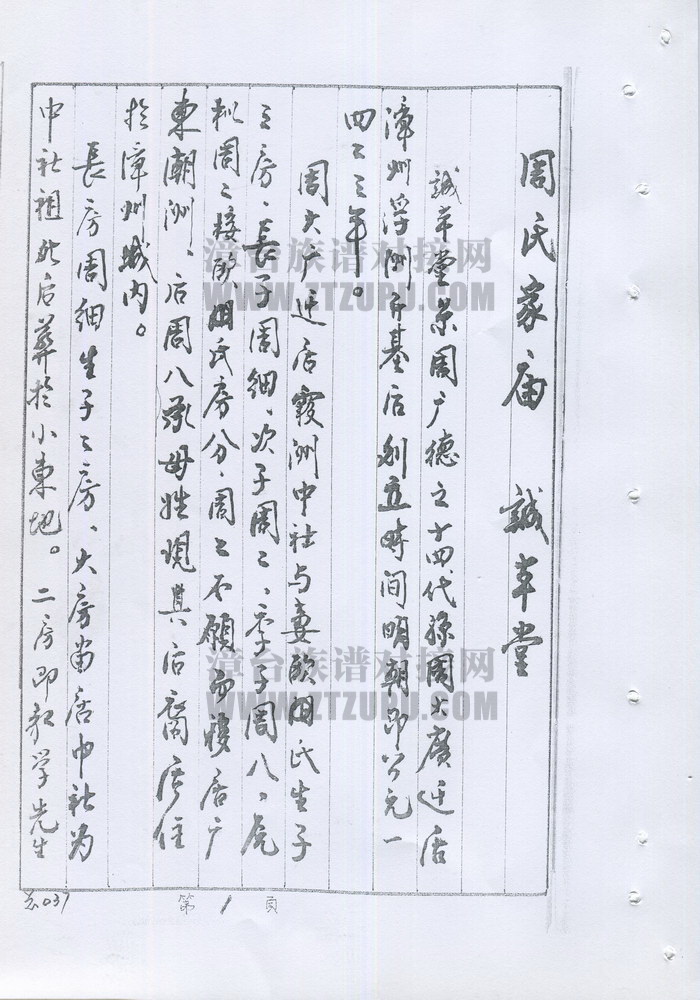 周氏家庙 誠本堂
誠本堂系周广德之十四代孫周大廣迁居
漳州浮洲开基后創立時间明朝即公元一
四二三年。
周大广迁居霞洲中社与妻歐阳氏生子
三房、長子周细、次子周二、季子周八。
周二接歐阳氏房分、周二不願而移居广
東潮洲、后周八承母姓現其后裔居住
於漳州城内。
長房周细生子二房、大房留居中社为
中社祖 后葬於小東地。二房即 学先生
总037
第1頁
漳台族谱对接网
WWW.ZTZUPU.COM
漳台族谱对接网
WWW.ZTZUPU.COM